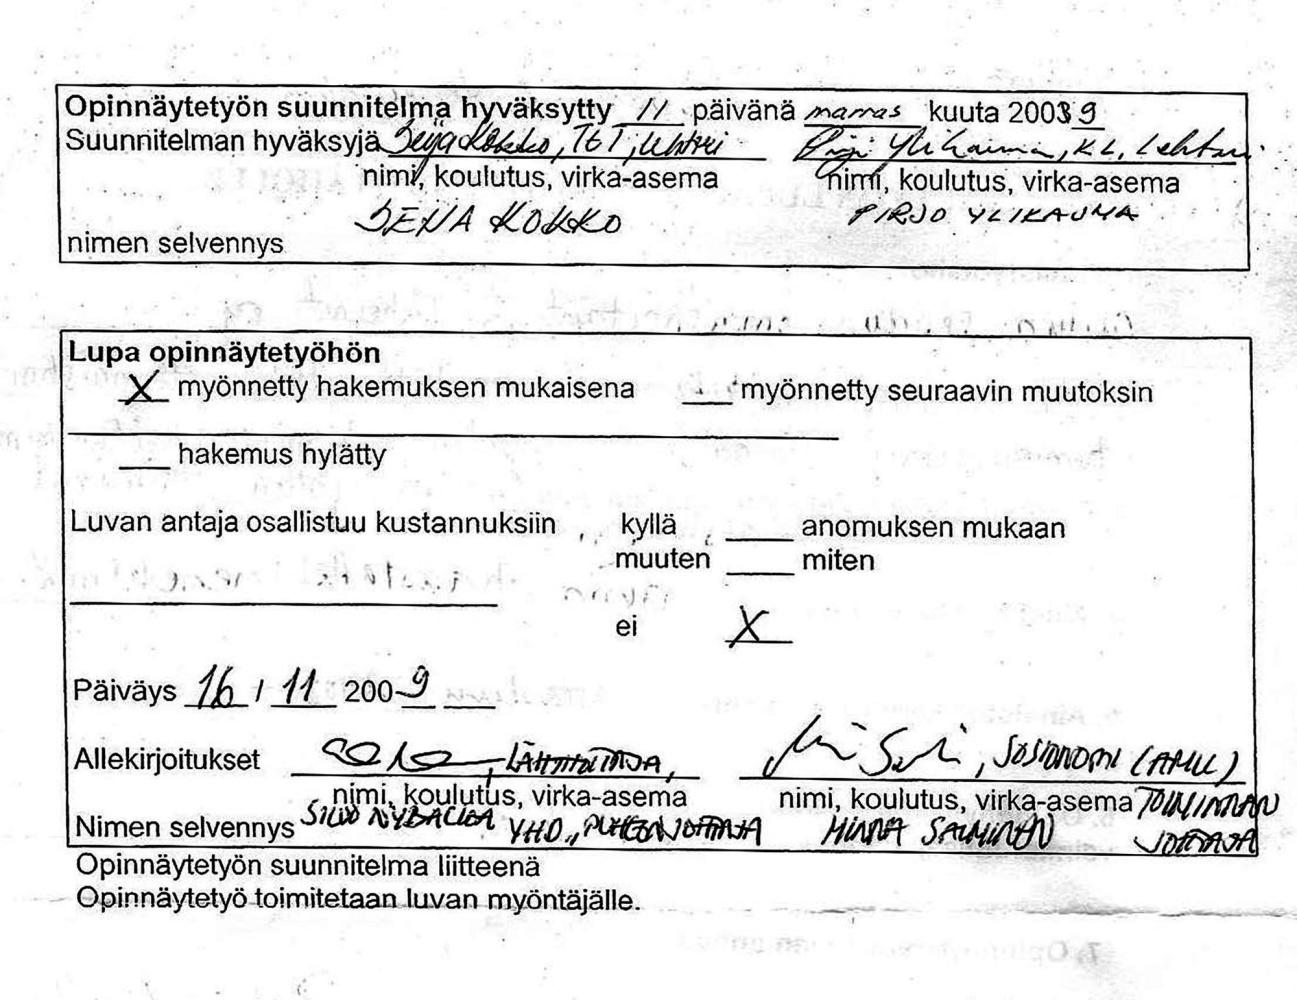 Opinnäytetyön suunnitelma hyväksytty 11 päivänä marras kuuta 2003 9
Suunnitelman hyväksyjä Seija Kokko, TtT, lehtori Pirjo Ylikauma, KL, Lehtori
nimi, koulutus, virka-asema nimi, koulutus, virka-asema
SEIJA KOKKO PIRJO YLIKAUMA
nimen selvennys
Lupa opinnäytetyöhön
X myönnetty hakemuksen mukaisena myönnetty seuraavin muutoksin
hakemus hylätty
Luvan antaja osallistuu kustannuksiin, kyllä anomuksen mukaan
muuten miten
ei X
Päiväys 16 / 11 200 9
Allekirjoitukset LÄHIHOITAJA, SOSIONOMI (AMK)
nimi, koulutus, virka-asema nimi, koulutus, virka-asema TOIMINNAN
Nimen selvennys YHD., PUHEENJOHTAJA MINNA SALMINEN JOHTAJA
Opinnäytetyön suunnitelma liitteenä
Opinnäytetyö toimitetaan luvan myöntäjälle.